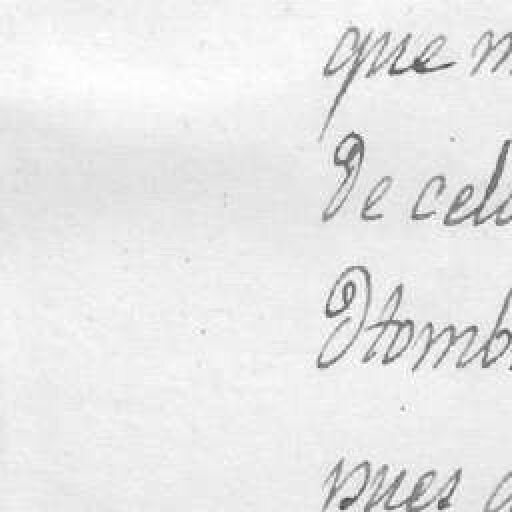 que m
de celu
Dtomb
pues a